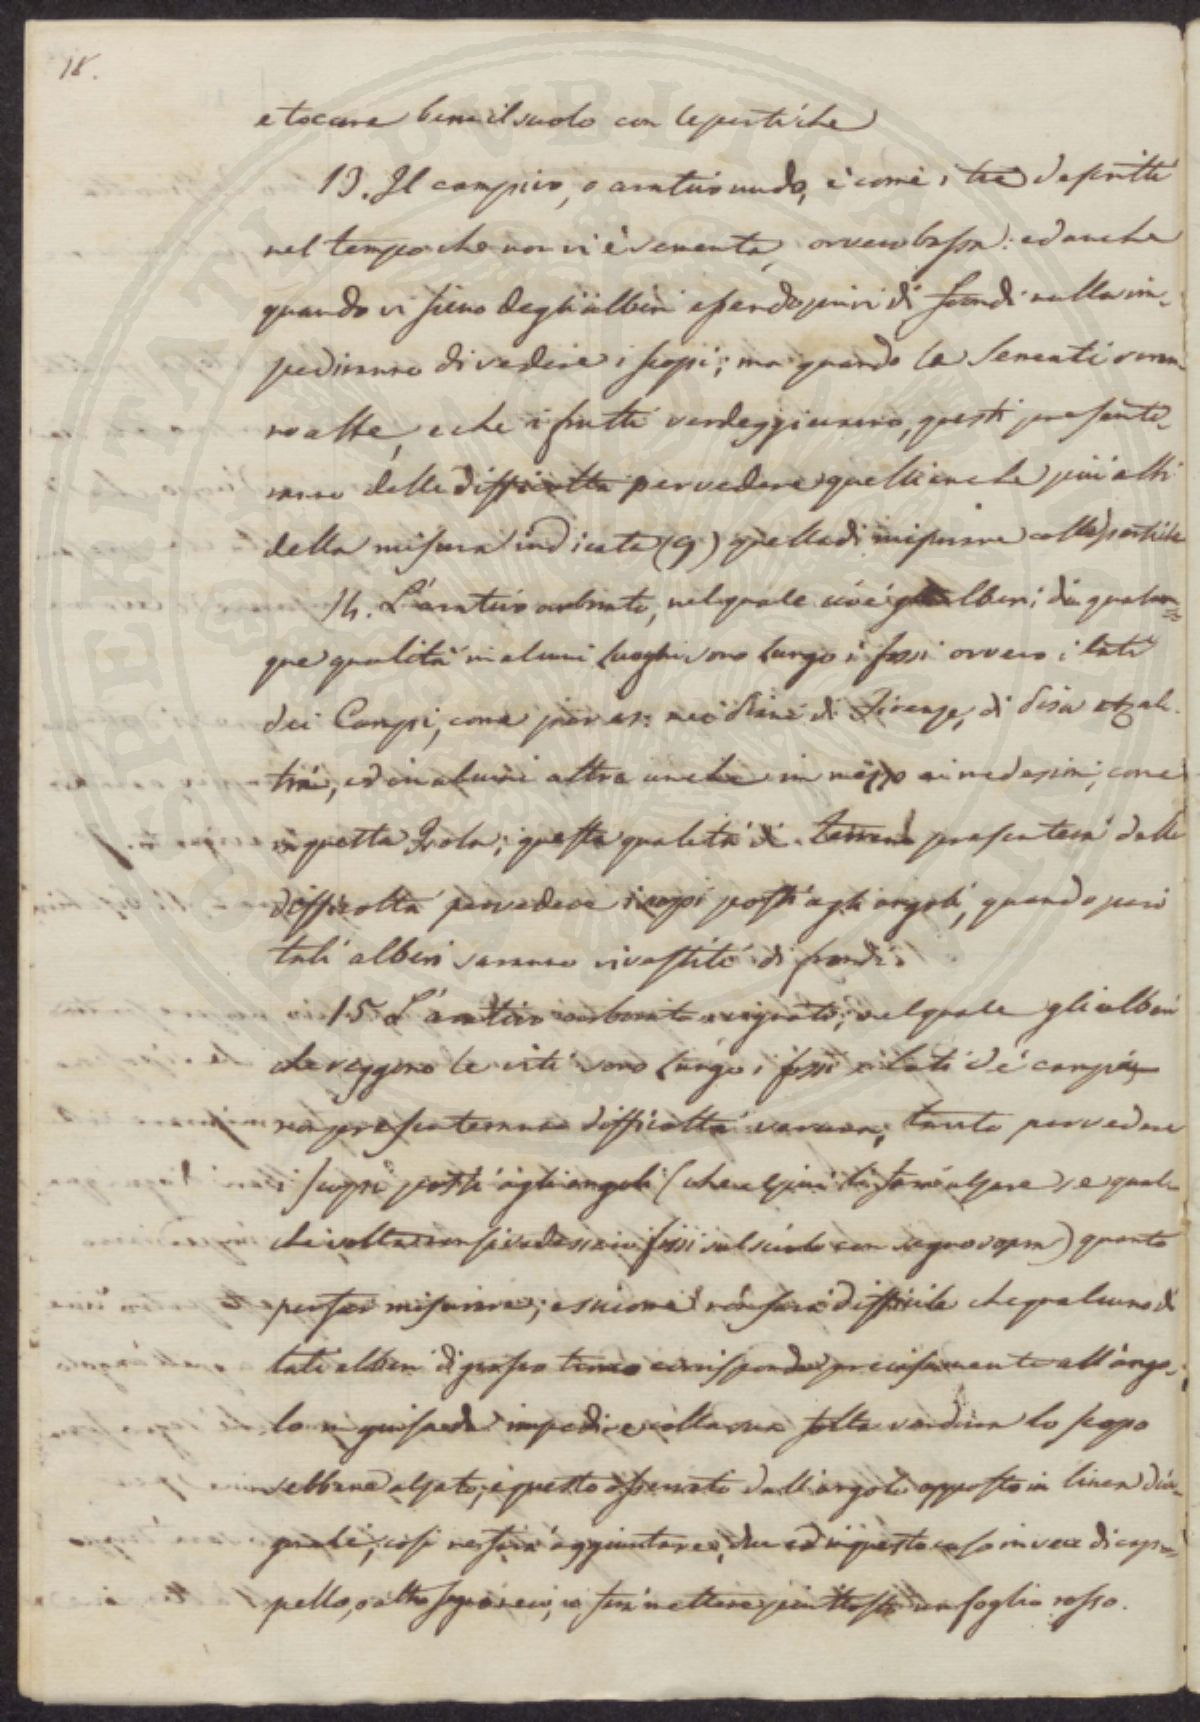 18.
e toccare bene il suolo con le pertiche
13. Il campivo, o arativo nudo, è come i tre descritti
nel tempo che non vi è sementa, ovvero bassa: ed anche
quando vi sieno degli alberi essendo privi di frondi nulla im-
pediranno di vedere i scopi; ma quando le sementi saran-
no alte, e che i frutti verdeggieranno, questi presente-
ranno delle difficoltà per vedere quelli anche più alti
della misura indicata (9) quella di misurare colle pertiche
14. L'arativo arborato, nel quale cioè gli alberi di qualun-
que qualità in alcuni luoghi sono lungo i fossi ovvero i lati
dei Campi, come per es: nei piani di Firenze, di Pisa ed al-
tri, ed in alcuni altri anche in mezzo ai medesimi, come
in questa Isola; questa qualità di terreno presenterà delle
difficoltà per vedere i scopi posti agli angoli, quando però
tali alberi saranno rivestiti di frondi.
15. L'arativo arborato vignato; nel quale gli alberi
che reggono le viti sono lungo i fossi o lati de' campi,
rappresenteranno difficoltà veruna, tanto per vedere
i scopi posti agli angoli (che al più li farò alzare se qual-
che volta non si vedessero fissi sul suolo con segno sopra) quanto
per far misurare; e siccome non sarà difficile che qualcuno di
tali alberi di grosso tronco corrisponda precisamente all'ango-
lo in guisa da impedire colla sua folta verdura lo scopo
sebbene alzato, e questo osservato dall'angolo opposto in linea dia-
gonale, così ne farò aggiuntare due ed in questo caso in vece di cap-
pello, o altro segno secco, io farò mettere piuttosto un foglio rosso.